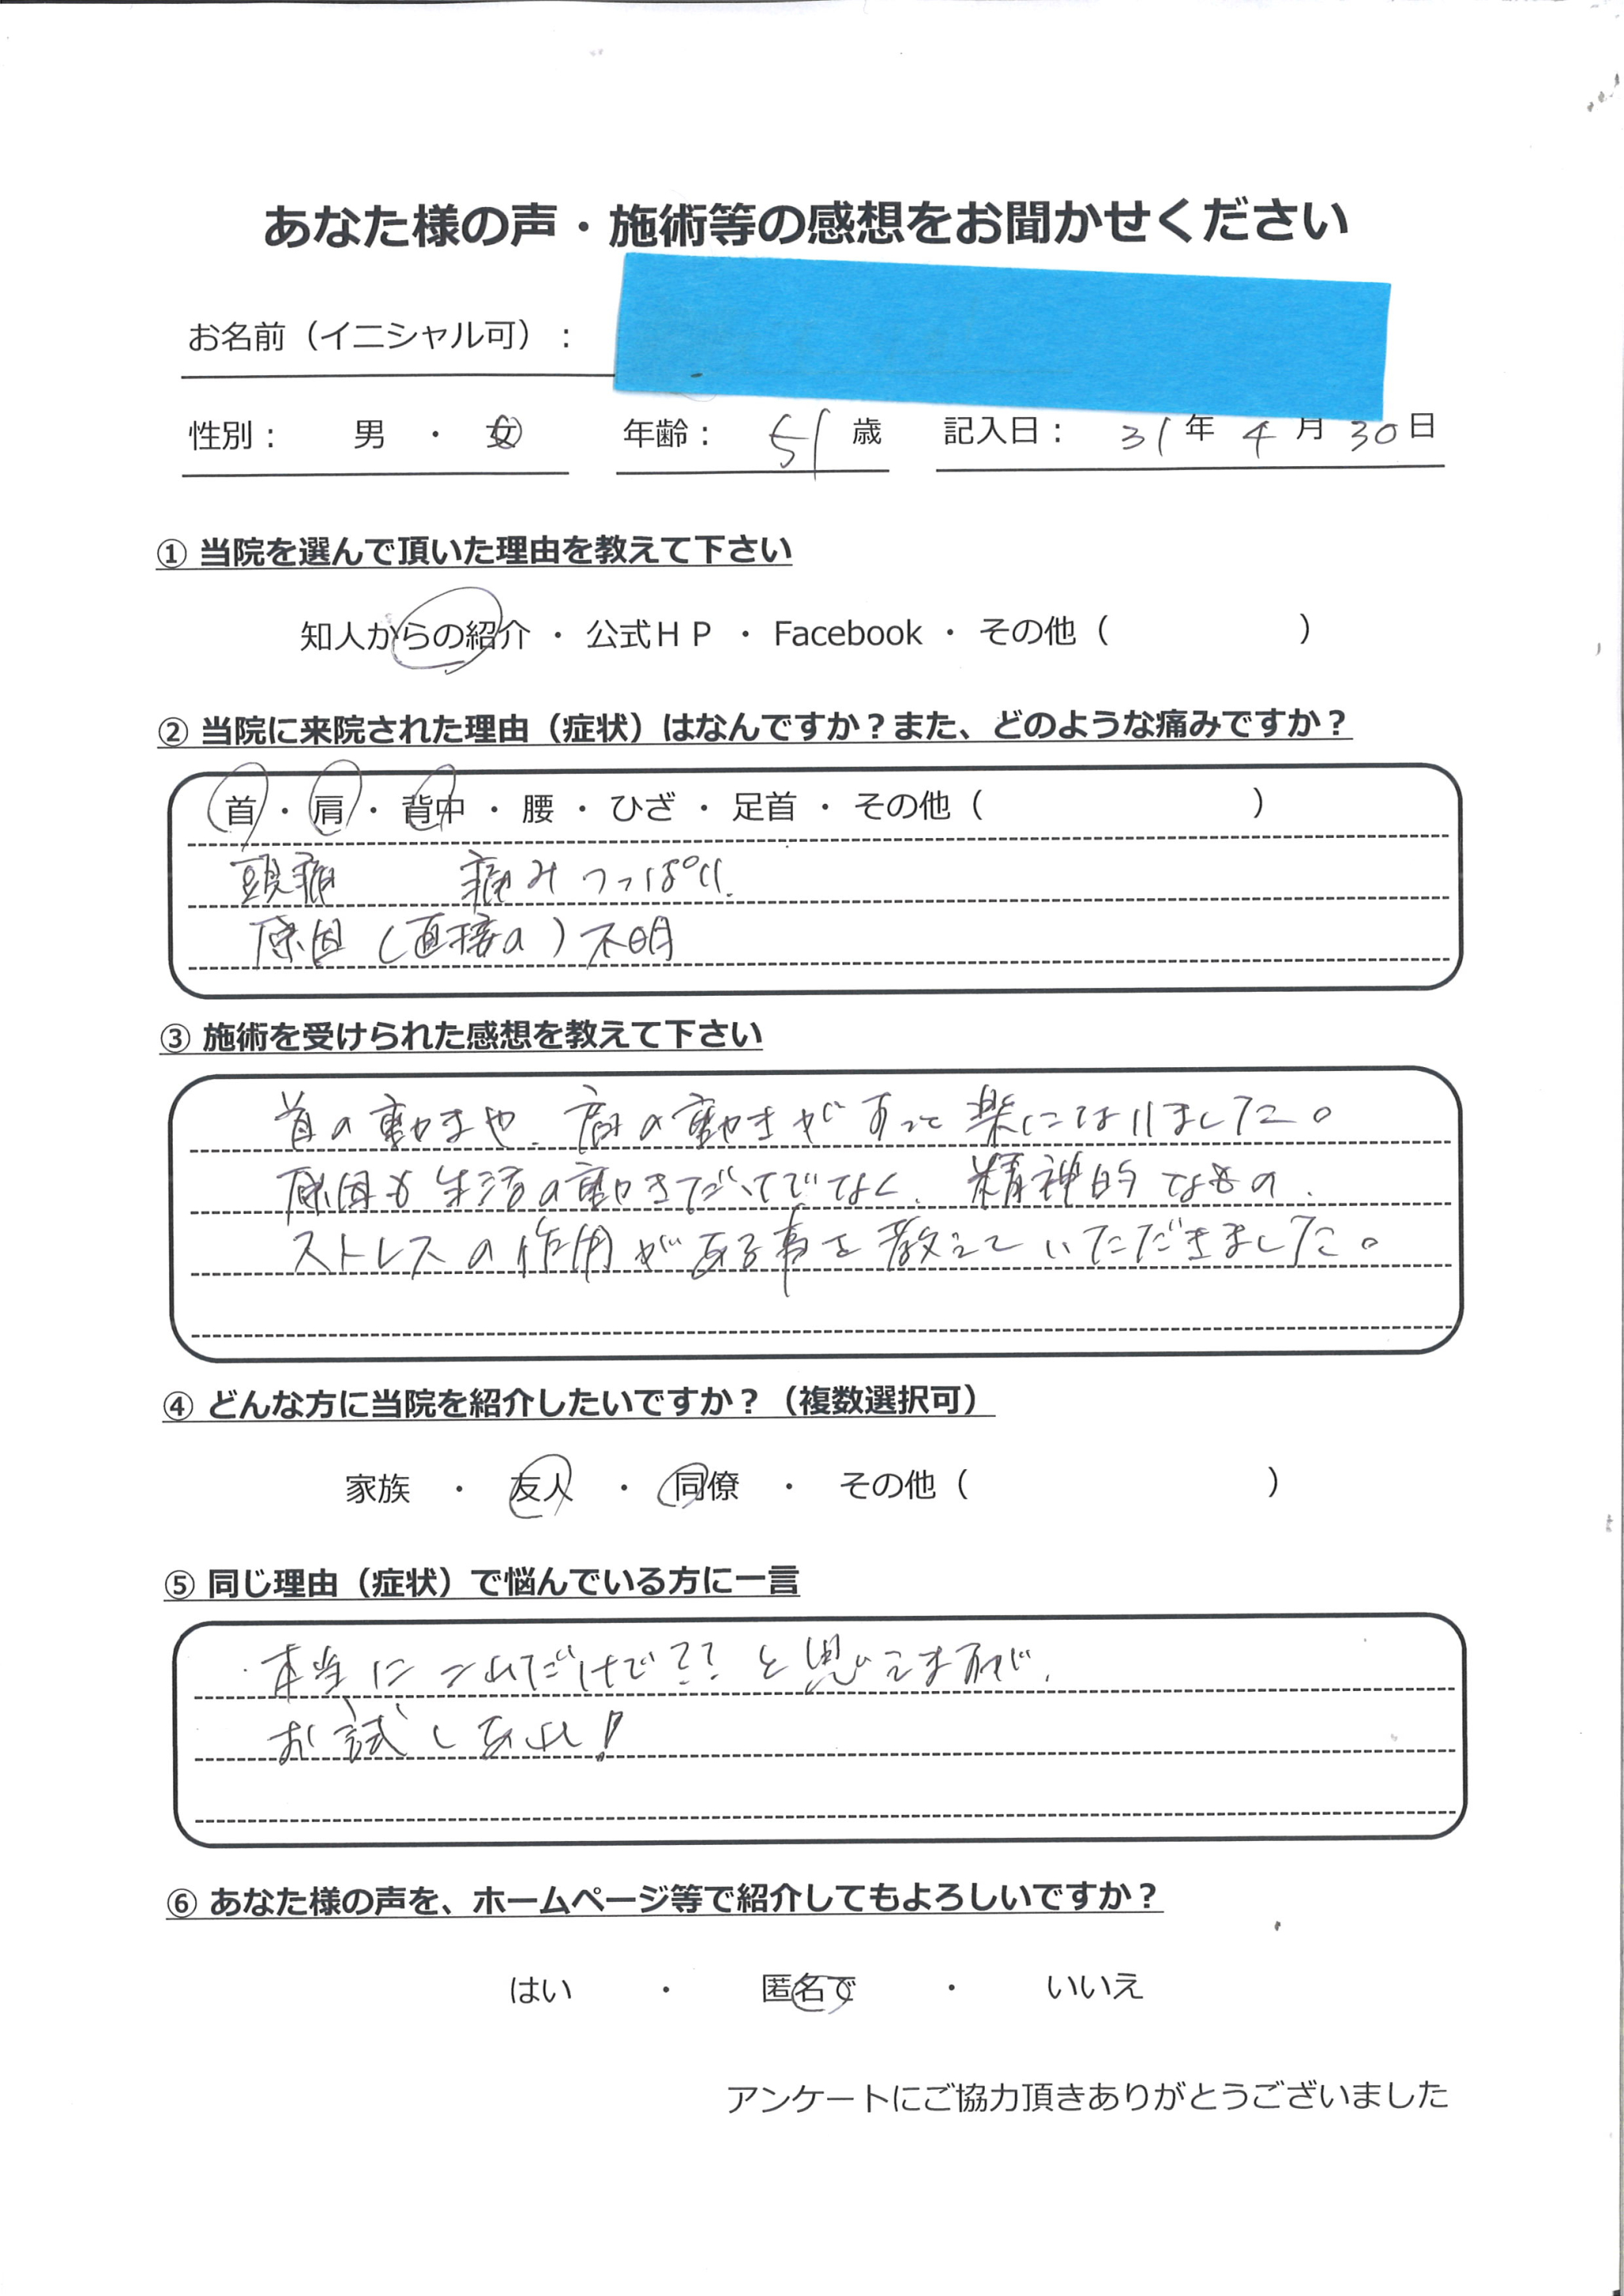 あなた様の声・施術等の感想をお聞かせください
お名前（イニシャル可）：
性別： 男 ・ 女 年齢： 51 歳 記入日： 31 年 4 月 30 日
① 当院を選んで頂いた理由を教えて下さい
知人からの紹介 ・ 公式ＨＰ ・ Facebook ・ その他（ ）
② 当院に来院された理由（症状）はなんですか？また、どのような痛みですか？
首 ・ 肩 ・ 背中 ・ 腰 ・ ひざ ・ 足首 ・ その他（ ）
頭痛 痛み つっぱり.
原因（直接の）不明
③ 施術を受けられた感想を教えて下さい
首の動きや、肩の動きがすっと楽になりました。
原因も生活の動きだけでなく、精神的なもの、
ストレスの作用がある事を教えていただきました。
④ どんな方に当院を紹介したいですか？（複数選択可）
家族 ・ 友人 ・ 同僚 ・ その他（ ）
⑤ 同じ理由（症状）で悩んでいる方に一言
本当にこれだけで??と思えますが、
お試しあれ!
⑥ あなた様の声を、ホームページ等で紹介してもよろしいですか？
はい ・ 匿名で ・ いいえ
アンケートにご協力頂きありがとうございました